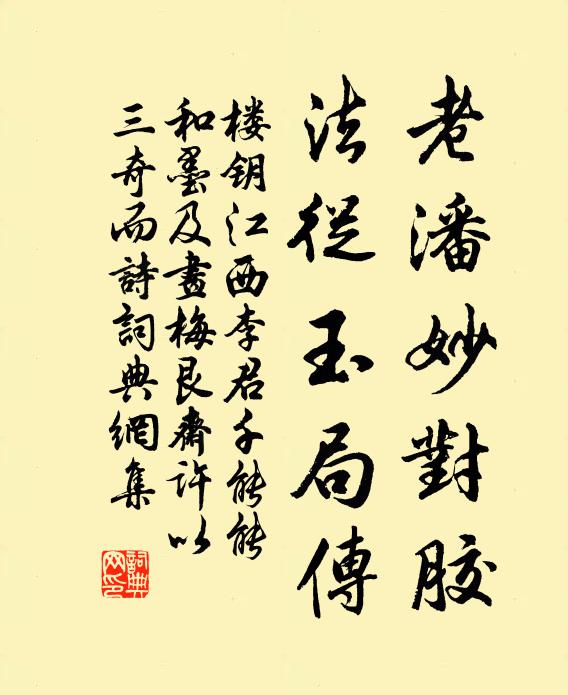 老潘妙對胶
法從玉局傳
楼钥江西李君千能能
和墨及畫梅艮齋許以
三奇而詩詞典網集
詞典
网印